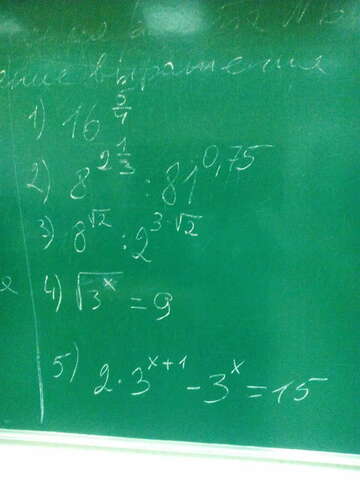 выражения
1) 16^(5/4)
2) 8^(2 1/3) : 81^(0,75)
3) 8^(√2) : 2^(3·√2)
4) √(3^x) = 9
5) 2 · 3^(x+1) - 3^x = 15